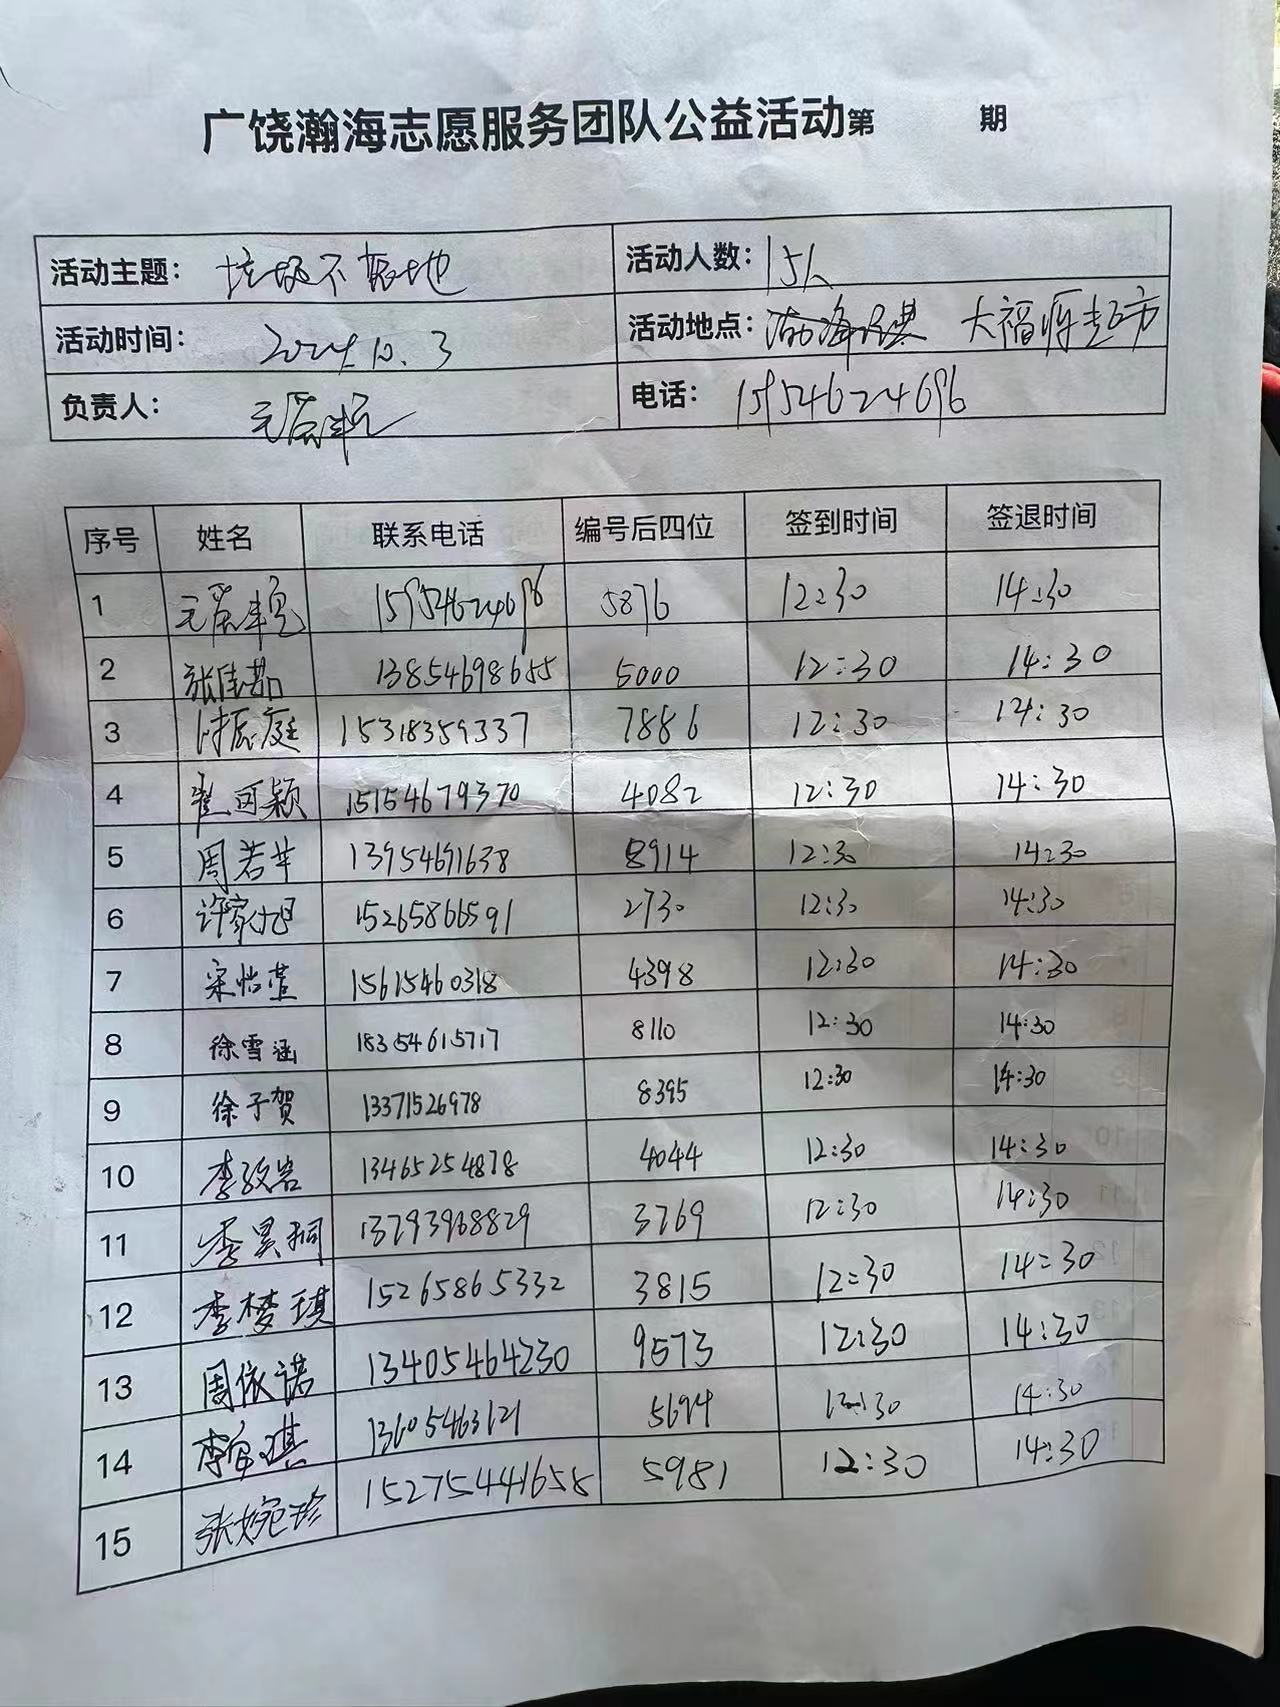 广饶瀚海志愿服务团队公益活动第 期
活动主题: 垃圾不落地 活动人数: 15人
活动时间: 2024.10.3 活动地点: 大福源超市
负责人: 电话: 15954624696
序号 姓名 联系电话 编号后四位 签到时间 签退时间
1 15954624696 5876 12:30 14:30
2 张佳茹 13854698655 5000 12:30 14:30
3 付振庭 15318359337 7886 12:30 14:30
4 崔可颖 15154679370 4082 12:30 14:30
5 周若芊 13954691638 8914 12:30 14:30
6 许家旭 15265866591 2730 12:30 14:30
7 宋怡萱 15615460318 4398 12:30 14:30
8 徐雪涵 18354615717 8110 12:30 14:30
9 徐子贺 13371526978 8395 12:30 14:30
10 李政岩 13465254878 4044 12:30 14:30
11 李昊桐 13793968829 3769 12:30 14:30
12 李梦琪 15265865332 3815 12:30 14:30
13 周依诺 13405464230 9573 12:30 14:30
14 13605463121 5694 12:30 14:30
15 张婉珍 15275441658 5981 12:30 14:30